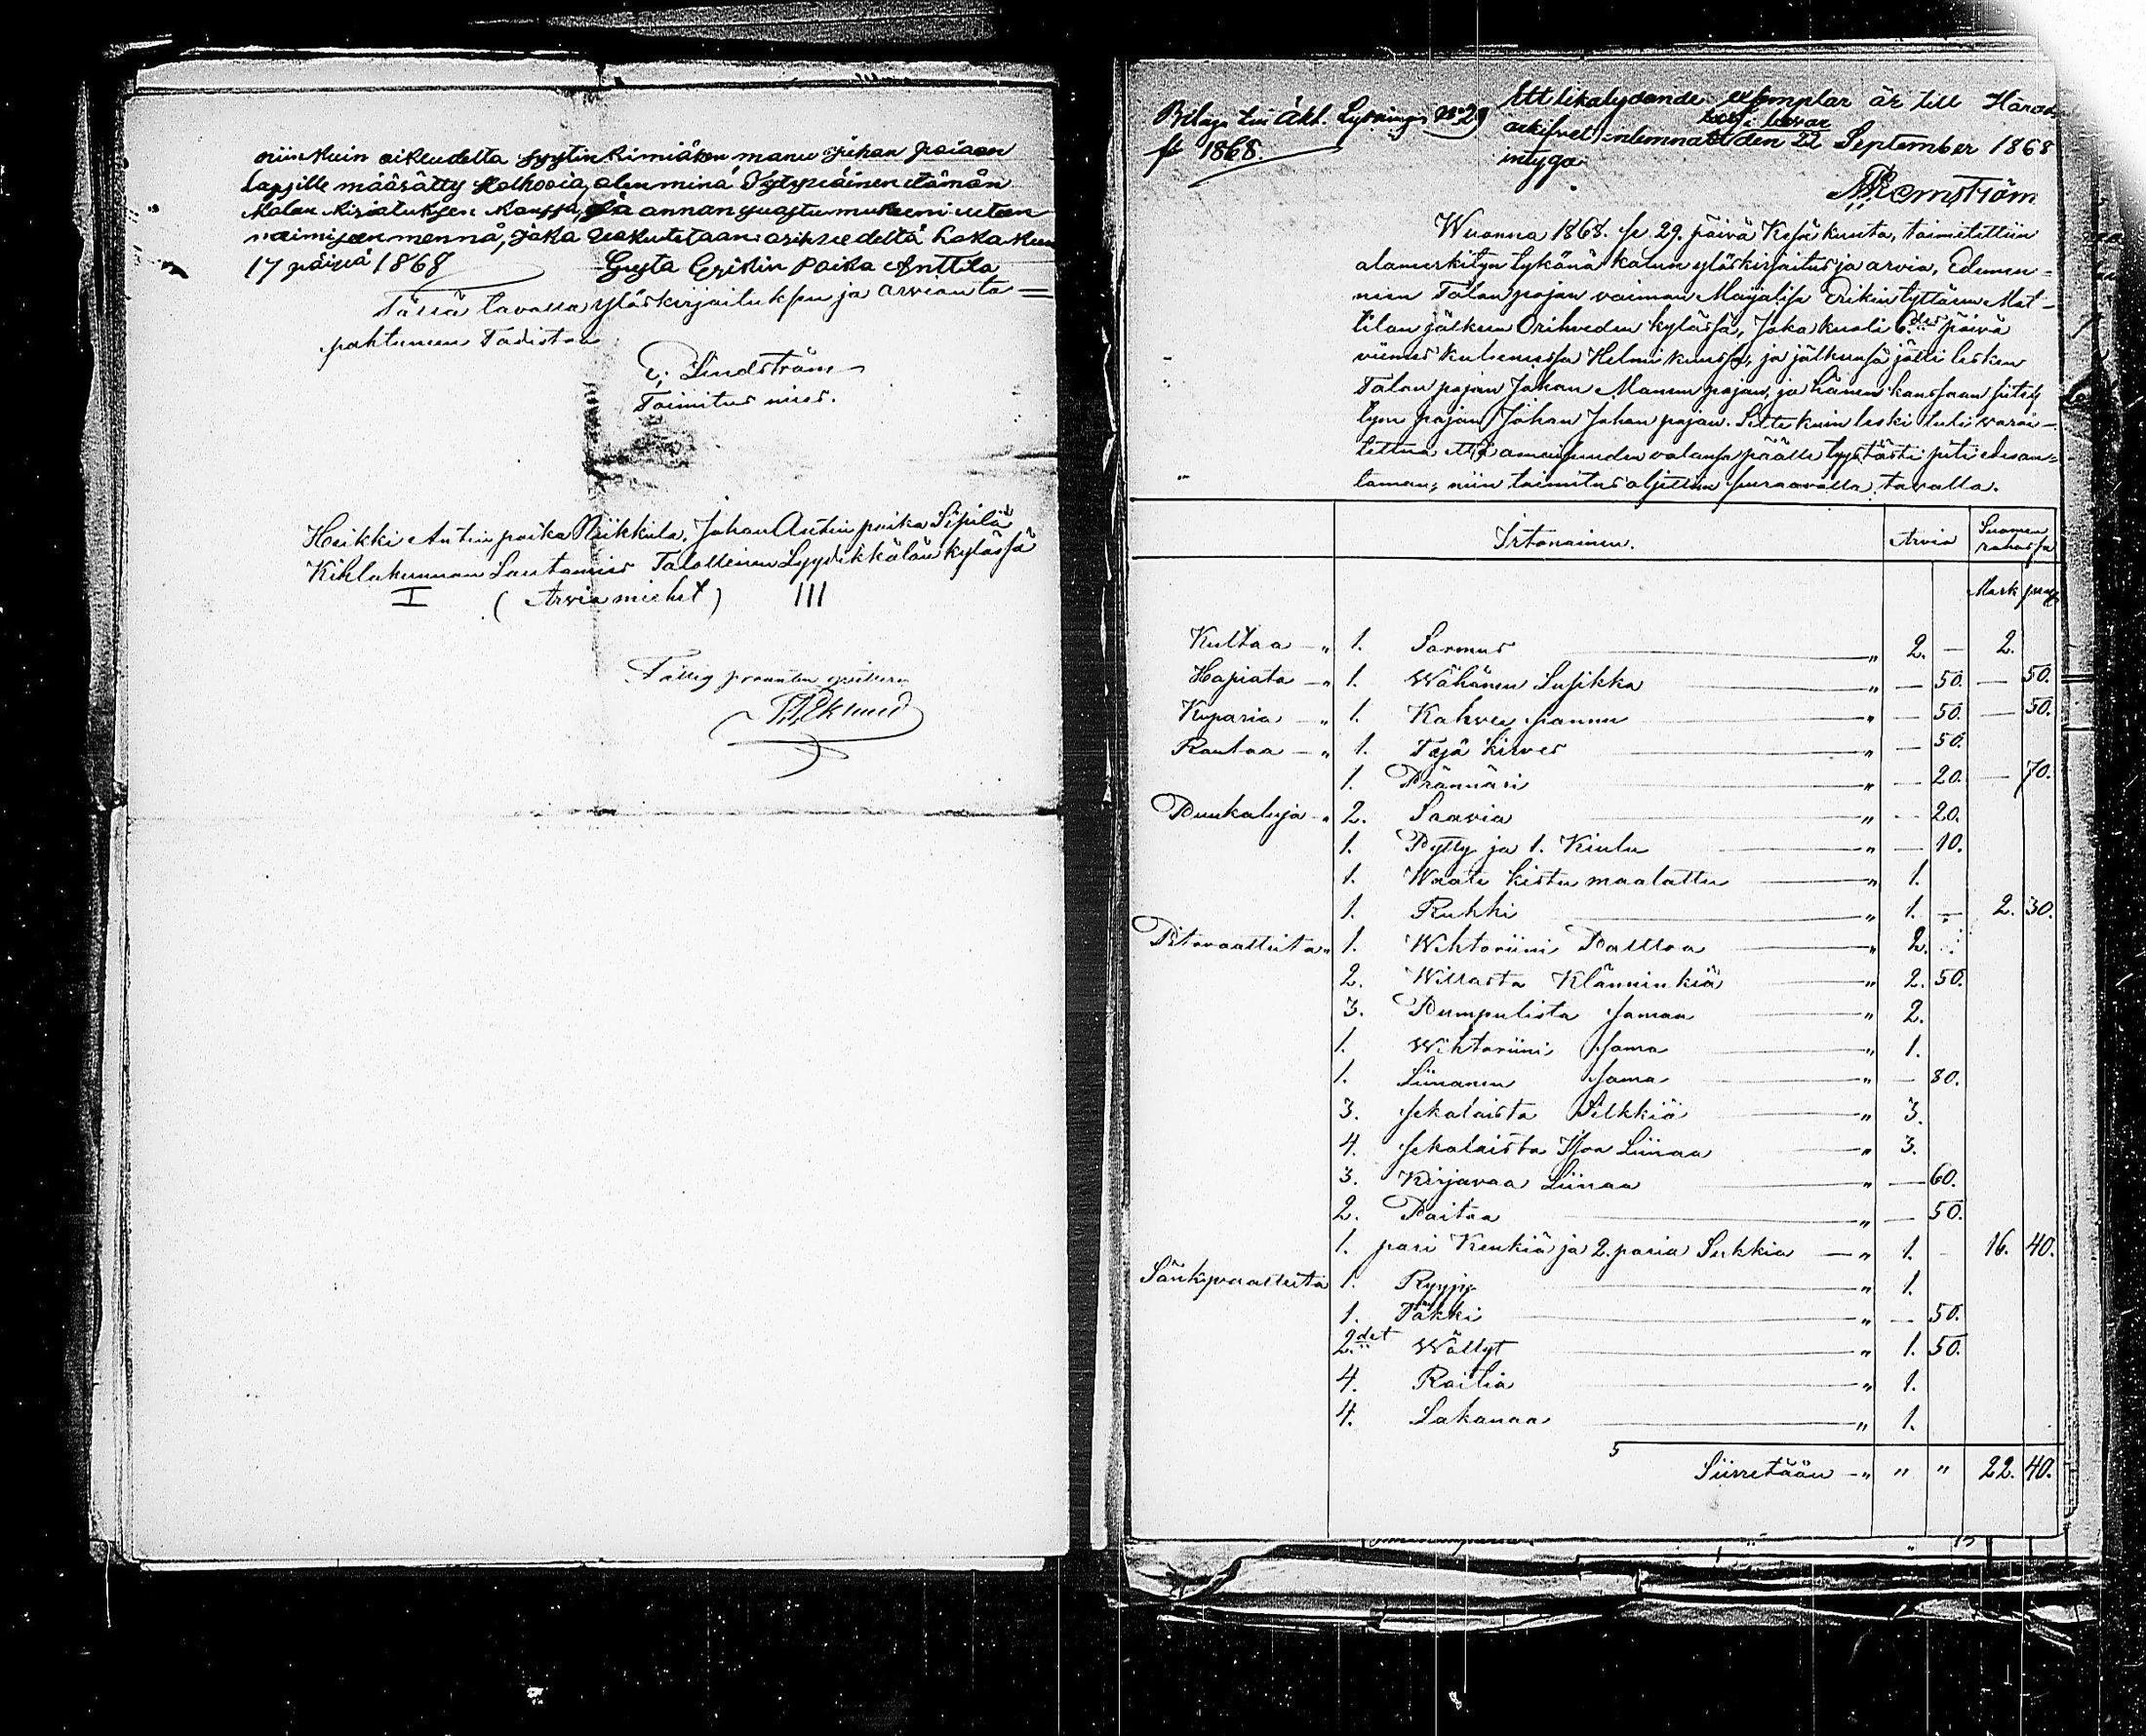 niinkuin oikeudelta syytinkimiähen manu juhan poiaan
lapsille määrätty Holhooia, olen minä tytyväinen tämän
Kalun Kirioituksen Kanssa, ja annan suostumukseni uteen
naimiseen mennä, joka vakutetaan orihvedeltä Loka kuun
17 päivä 1868 Gusta Erikin Poika Anttila
Tässä tavassa ylöskirjoituksen ja arvion ta-
pahtuneen Todistan
E. Lindström
Toimitus mies.
Heikki Antin poika Niikkula. Johan Antin poika Sipilä
Kihlakunnan Lautamies Talollinen Lyydikkälän kylässä
I (Arvio miehet) III
Fattig procenten qvitteras
Eklund
Bilaga till Äkt. Lysnings No 29
f 1868.
Ett likalydande exemplar är till Härads
arkifvet inlemnat den 22 September 1868
intygar
Remström
Wuonna 1868. se 29. päivä Kesäkuuta, toimitettiin
alamerkityn tykönä kalun ylöskirjoitus ja arvio, Edemen-
nen Talon pojan vaimon Majalisa Erikin tyttären Mat-
tilan jälkeen Orihveden kylässä, Joka kuoli 6des päivä
viimes kuluneessa Helmikuussa, ja jälkeensä jätti lesken
Talon pojan Johan Manun pojan, ja hänen kanssaan sitety
tyn pojan Johan Johan pojan. Sitte kuin leski tuli varoi-
tettua, että omaisuuden valansa päälle tyystästi piti edesan-
taman; niin toimitus aljettiin seuraavalla tavalla.
Irtonainen. Arvio Suomen rahassa
Mark peng
Kultaa - " 1. Sormus " 2. — 2.
Hopiata - " 1. Wähänen Lusikka " — 50. — 50.
Kuparia - " 1. Kahvey pannu " — 50. — 50.
Rautaa - " 1. Tojä kirves " — 50.
1. Prännäri " — 20. — 70.
Puukaluja - " 2. Saavia " — 20.
1. Pytty ja 1. Kiulu " — 10.
1. Waate kistu maalattu " 1.
1. Rukki " 1. — 2. 30.
Pitovaatteita " 1. Wihtoriini Palttoa " 2.
2. Willasta Klänninkiä " 2. 50.
3. Pumpulista samaa " 2.
1. Wihtoriini sama " 1.
1. Liinanen sama " — 80.
3. sekalaista Silkkiä " 3.
4. sekalaista Isoa Liinaa " 3.
3. Kirjavaa Liinaa " — 60.
2. Paitaa " — 50.
1. pari Kenkiä ja 2. paria Sukkia — " 1. - 16. 40.
Sänkyvaatteita 1. Ryyjy " 1.
1. Täkki " — 50.
2.det Wällyt " 1. 50.
4. Raitia " 1.
4. Lakanaa " 1.
5
Siirretään - " " " 22. 40.